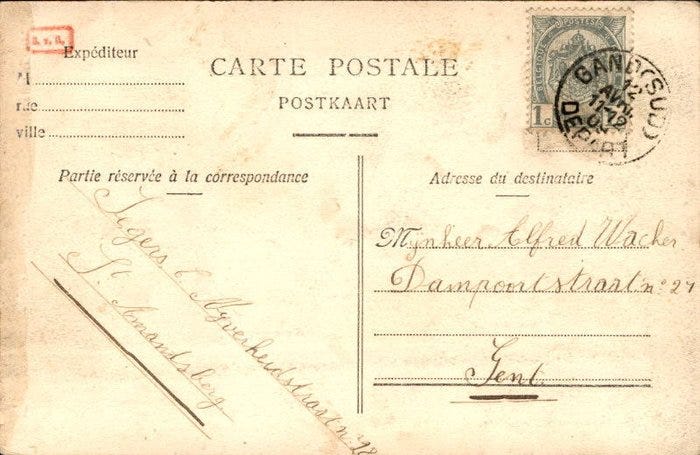 S. v. B.
Expéditeur
M
rue
ville
CARTE POSTALE
POSTKAART
BELGIQUE POSTES
1 c
GAND (SUD)
12
AVRIL
11-12
DEPART
Partie réservée à la correspondance
Segers E Nyverheidstraat n° 12
St Amandsberg
Adresse du destinataire
Mynheer Alfred Wacher
Dampoortstraat no 27
Gent